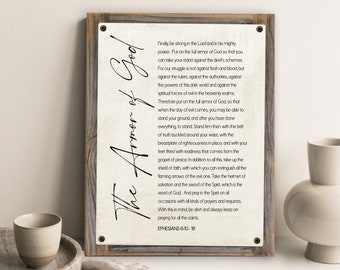 The Armor of God
Finally, be strong in the Lord and in his mighty
power. Put on the full armor of God, so that you
can take your stand against the devil's schemes.
For our struggle is not against flesh and blood, but
against the rulers, against the authorities, against
the powers of this dark world and against the
spiritual forces of evil in the heavenly realms.
Therefore put on the full armor of God, so that
when the day of evil comes, you may be able to
stand your ground, and after you have done
everything, to stand. Stand firm then, with the belt
of truth buckled around your waist, with the
breastplate of righteousness in place, and with your
feet fitted with readiness that comes from the
gospel of peace. In addition to all this, take up the
shield of faith, with which you can extinguish all the
flaming arrows of the evil one. Take the helmet of
salvation and the sword of the Spirit, which is the
word of God. And pray in the Spirit on all
occasions with all kinds of prayers and requests.
With this in mind, be alert and always keep on
praying for all the saints.
EPHESIANS 6:10-18